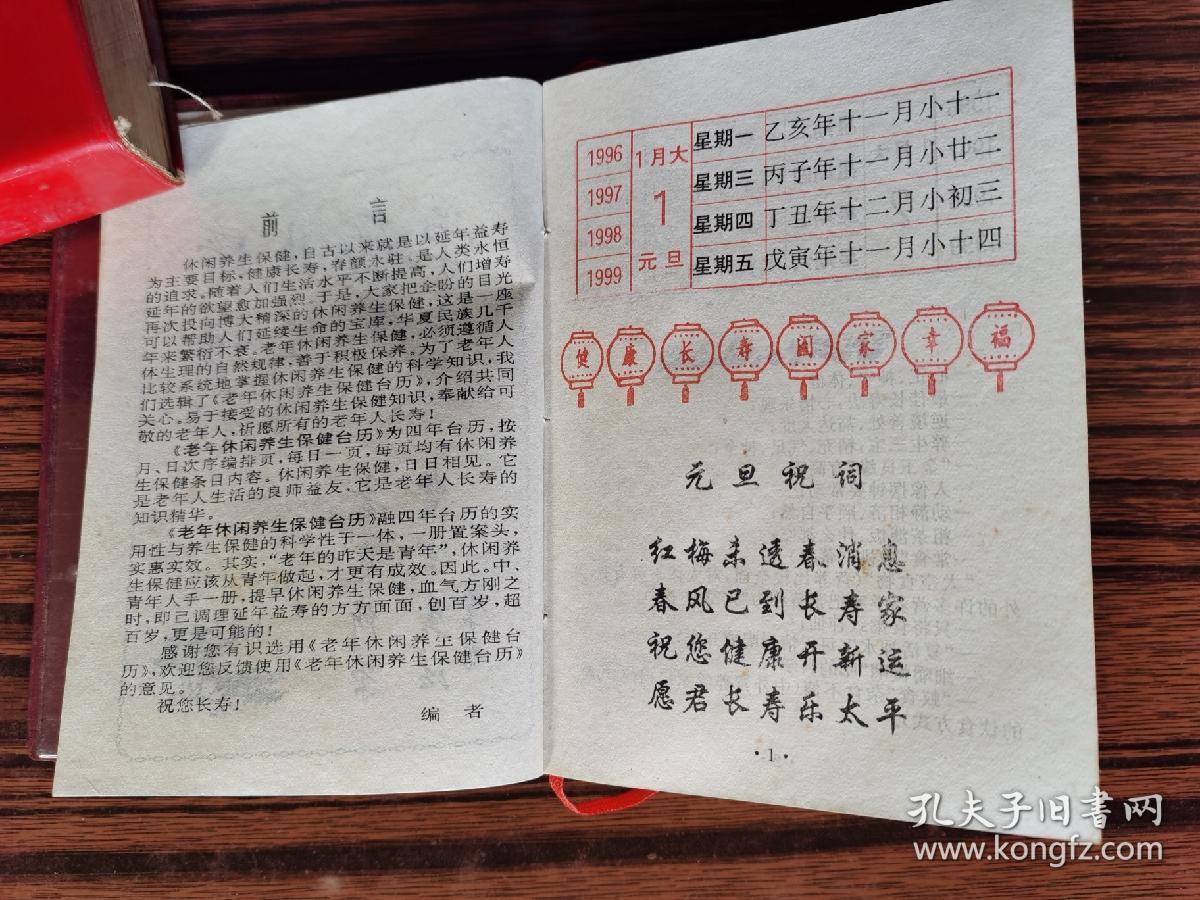 前 言
休闲养生保健,自古以来就是以延年益寿
为主要目标,健康长寿,春颜永驻。是人类永恒
的追求。随着人们生活水平不断提高,人们增寿
延年的欲望愈加强烈。于是,大家把企盼的目光
再次投向博大精深的休闲养生保健,这是一座
可以帮助人们延续生命的宝库,华夏民族几千
年来繁衍不衰。老年休闲养生保健,必须遵循人
体生理的自然规律,善于积极保养。为了老年人
比较系统地掌握休闲养生保健的科学知识,我
们选辑了《老年休闲养生保健台历》,介绍共同
关心。易于接受的休闲养生保健知识,奉献给可
敬的老年人,祈愿所有的老年人长寿!
《老年休闲养生保健台历》为四年台历,按
月、日次序编排页,每日一页,每页均有休闲养
生保健条目内容。休闲养生保健,日日相见。它
是老年人生活的良师益友,它是老年人长寿的
知识精华。
《老年休闲养生保健台历》融四年台历的实
用性与养生保健的科学性于一体,一册置案头,
实惠实效。其实,“老年的昨天是青年”,休闲养
生保健应该从青年做起,才更有成效。因此。中、
青年人手一册,提早休闲养生保健,血气方刚之
时,即已调理延年益寿的方方面面,创百岁,超
百岁,更是可能的!
感谢您有识选用《老年休闲养生保健台
历》,欢迎您反馈使用《老年休闲养生保健台历》
的意见。
祝您长寿!
编 者
1996 1月大 星期一 乙亥年十一月小十一
1997 1 星期三 丙子年十一月小廿二
1998 星期四 丁丑年十二月小初三
1999 元旦 星期五 戊寅年十一月小十四
健康长寿阖家幸福
元旦祝词
红梅未透春消息
春风已到长寿家
祝您健康开新运
愿君长寿乐太平
·1·
孔夫子旧书网
www.kongfz.com